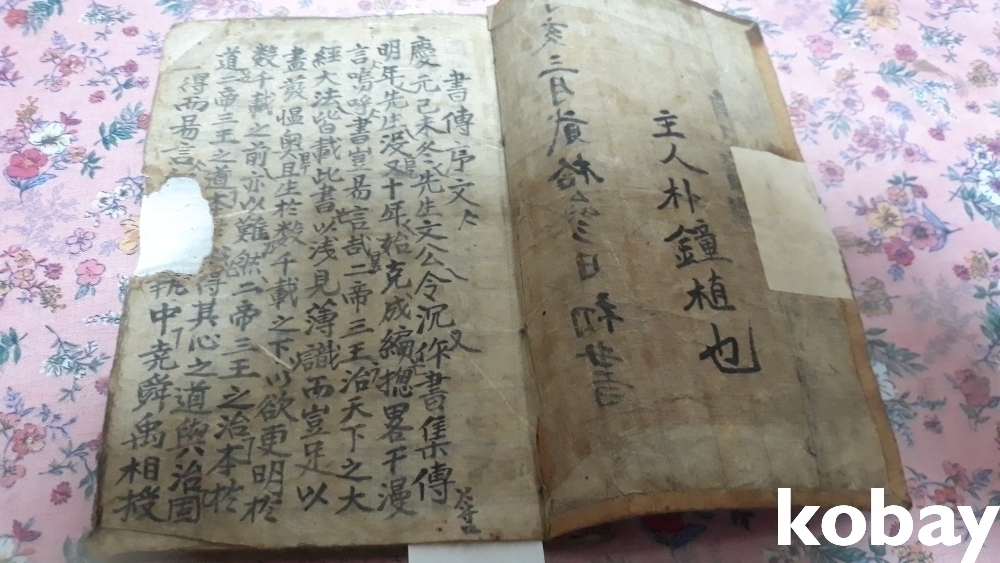 主人朴鐘植也
亥三月
日
書傳序文
慶元己未冬先生文公令沉作書集傳
明年先生没又十年始克成編摠畧干漫
言嗚呼書豈易言哉二帝三王治天下之大
經大法皆載此書以浅見薄識而豈足以
盡發慍奧且生於数千載之下以欲更明於
数千載之前亦以難然二帝三王之治本於
道二帝三王之道本得其心之道與治固
得而易言执中尭舜禹相授
kobay